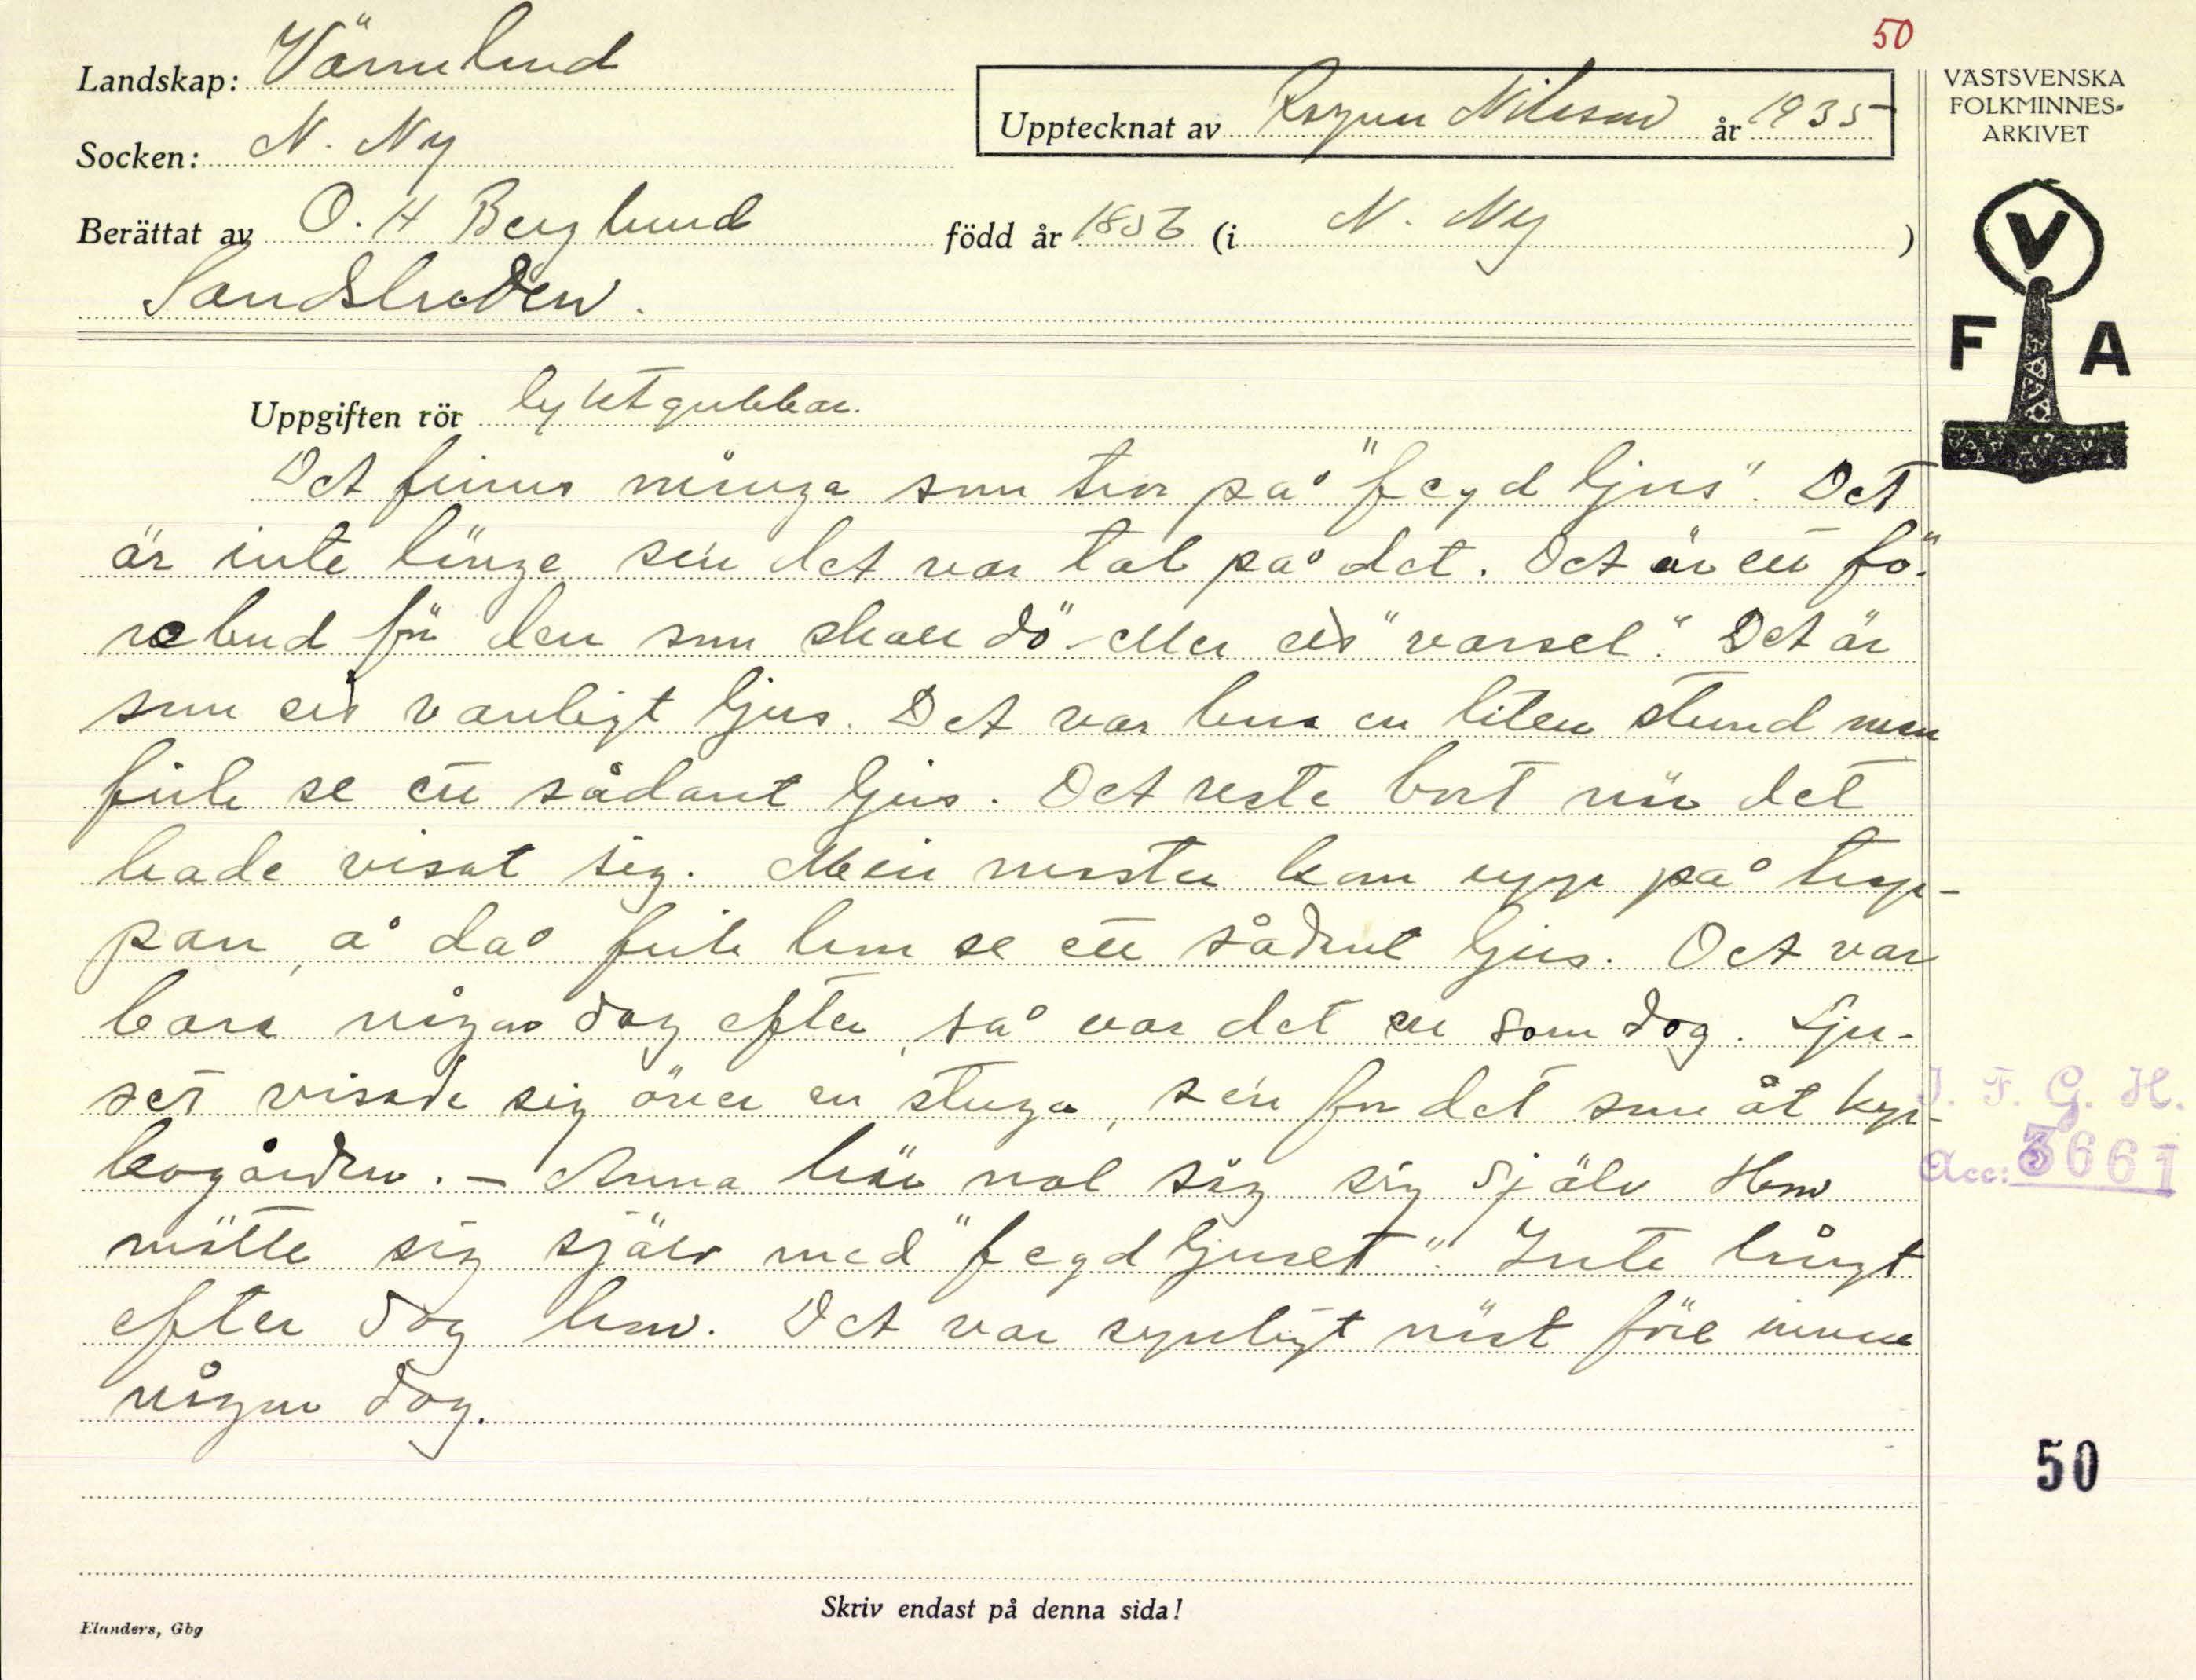 50
Landskap: Värmland
Upptecknat av Ragnar Nilsson år 1935
VÄSTSVENSKA
FOLKMINNES-
ARKIVET
Socken: N. Ny
Berättat av O. H Berglund född år 1856 (i N. Ny )
V
F A
Uppgiften rör lyktgubbar.
Det finns många som tror på "fegd ljus". Det
är inte länge se'n det var tal på det. Det är ett fö-
rebud för den som skall dö eller ett "varsel". Det är
som ett vanligt ljus. Det var bara en liten stund man
fick se ett sådant ljus. Det reste bort när det
hade visat sig. Min moster kom upp på trap-
pan, å då fick hon se ett sådant ljus. Det var
bara någon dag efter, så var det en som dog. Lju-
set visade sig över en stuga, se'n for det som åt kyr-
kogården. - Anna här såg sig själv Hon
mötte sig själv med "fegdljuset". Inte långt
efter dog hon. Det var synligt näst före innan
någon dog.
I. F. G. H.
Acc: 3661
50
Skriv endast på denna sida!
Elanders, Gbg